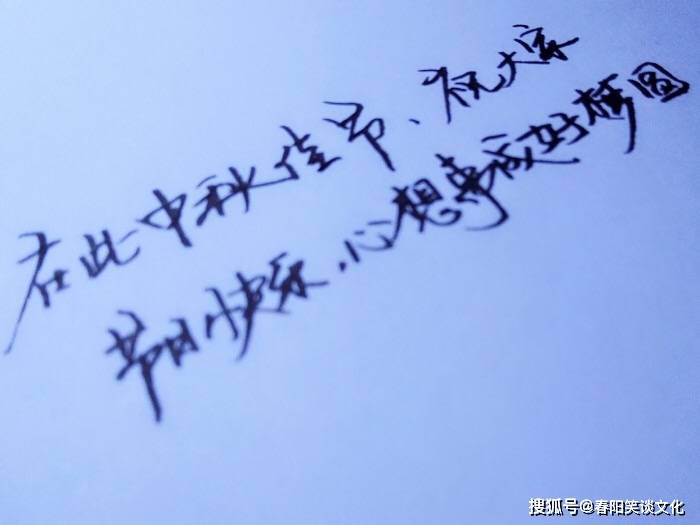 在此中秋佳节、祝大家
节日快乐、心想事成好梦圆
搜狐号@春阳笑谈文化